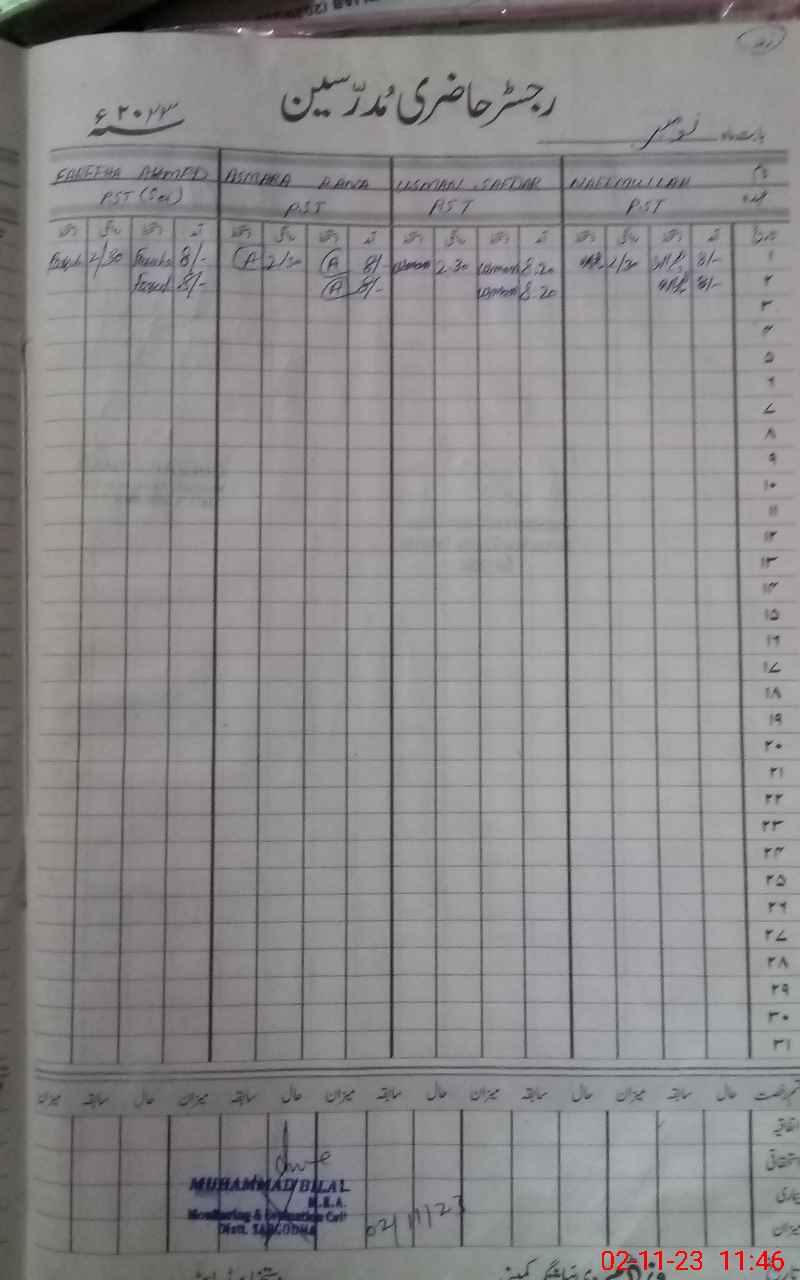 رجسٹر حاضری مُدرّسین
سنہ ۲۰۲۳ ء
بابت ماہ نومبر
نام NAEEMULLAH USMAN SAFDAR ASMARA RANA AHMED
عہدہ PST PST PST PST
آمد دستخط روانگی دستخط آمد دستخط روانگی دستخط آمد دستخط روانگی دستخط آمد دستخط روانگی دستخط
۱ 8/- 1/30 8.20 Usman 2.30 Usman 8/- A 2/30 A 8/- 2/30
۲ 8/- 8.20 Usman 8/- A 8/-
۳
۴
۵
۶
۷
۸
۹
۱۰
۱۱
۱۲
۱۳
۱۴
۱۵
۱۶
۱۷
۱۸
۱۹
۲۰
۲۱
۲۲
۲۳
۲۴
۲۵
۲۶
۲۷
۲۸
۲۹
۳۰
۳۱
حال سابقہ میزان حال سابقہ میزان حال سابقہ میزان حال سابقہ میزان
اتفاقیہ
استحقاقی
بیماری
میزان
MUHAMMAD BILAL
M.E.A.
Monitoring & Evaluation Cell
Distt. SARGODHA
02/11/23
02-11-23 11:46